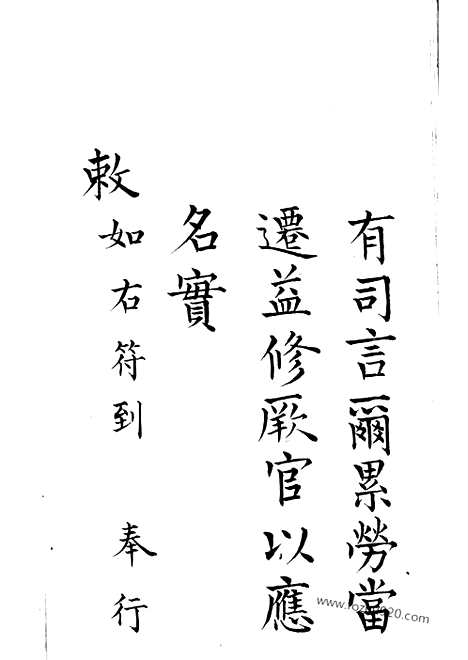 有司言爾累勞當
遷益修厥官以應
名實
敕
如右符到　奉行